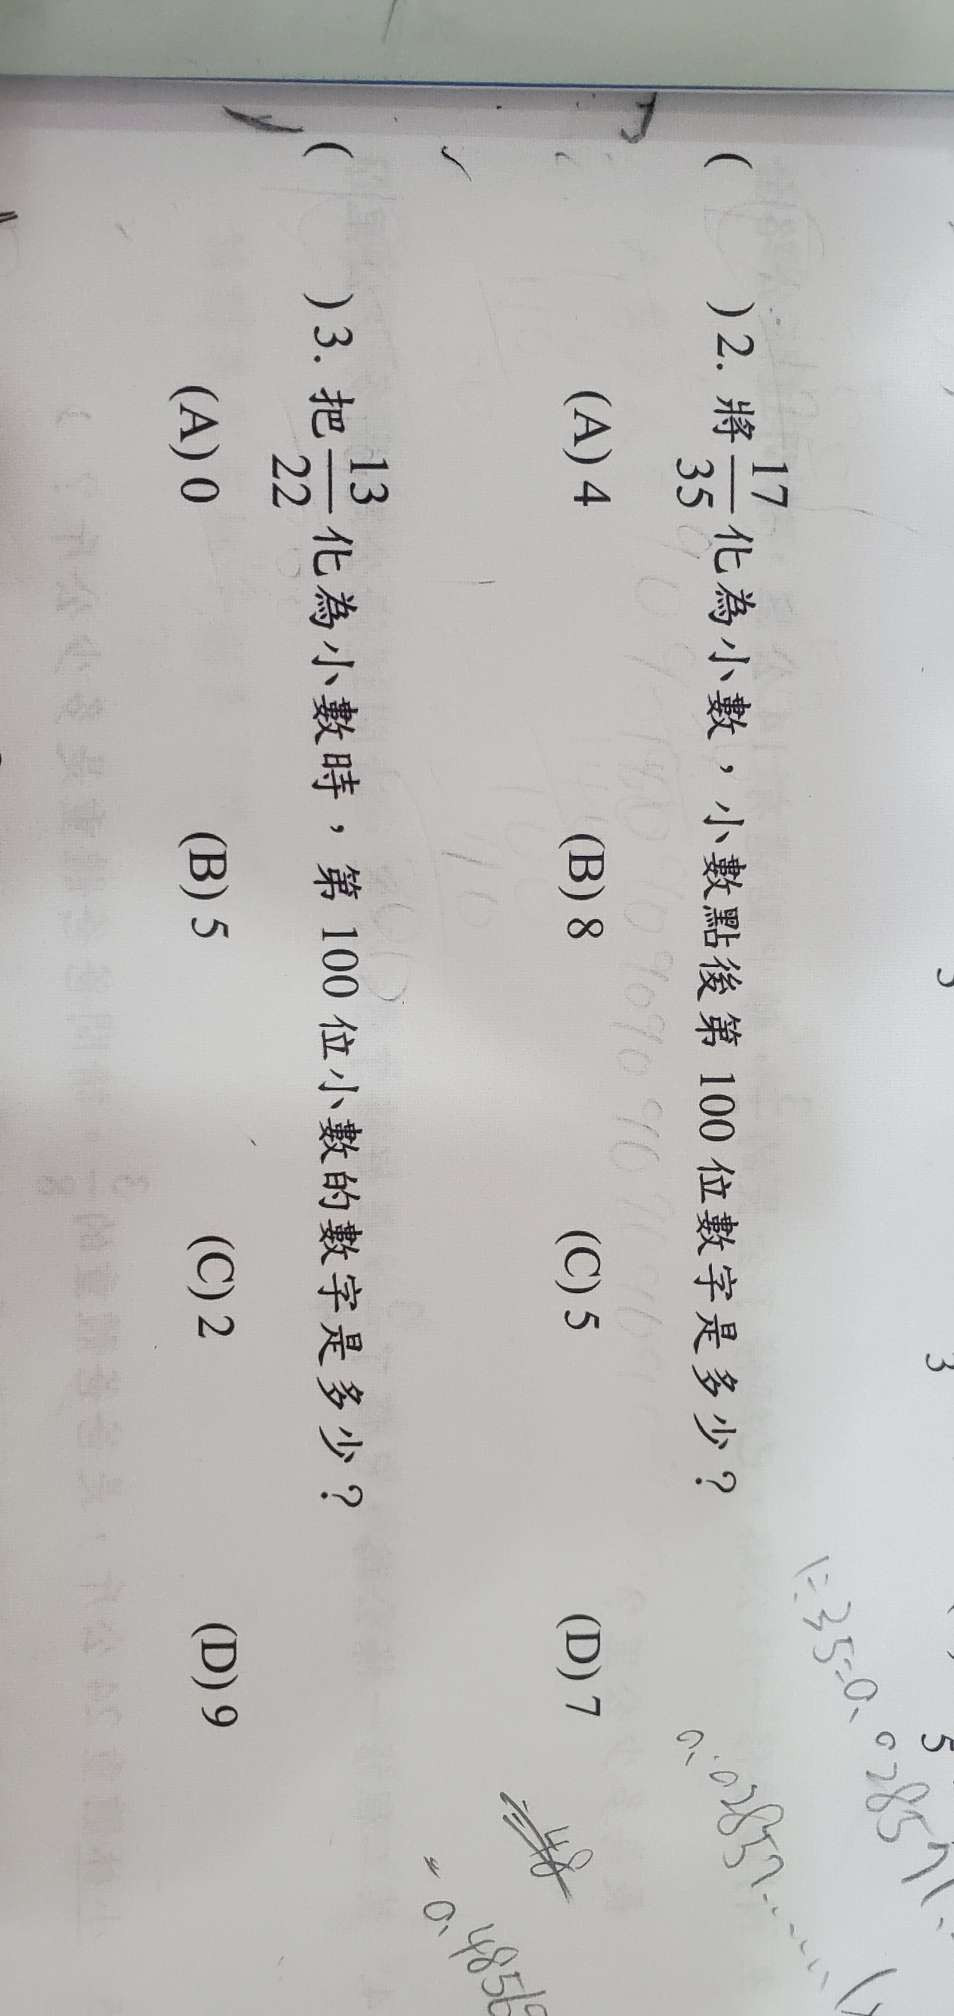 (　　) 2. 將 17/35 化為小數，小數點後第 100 位數字是多少？
(A) 4　(B) 8　(C) 5　(D) 7
(　　) 3. 把 13/22 化為小數時，第 100 位小數的數字是多少？
(A) 0　(B) 5　(C) 2　(D) 9
3
5
1÷35=0.02857
0.02857......
=0.485